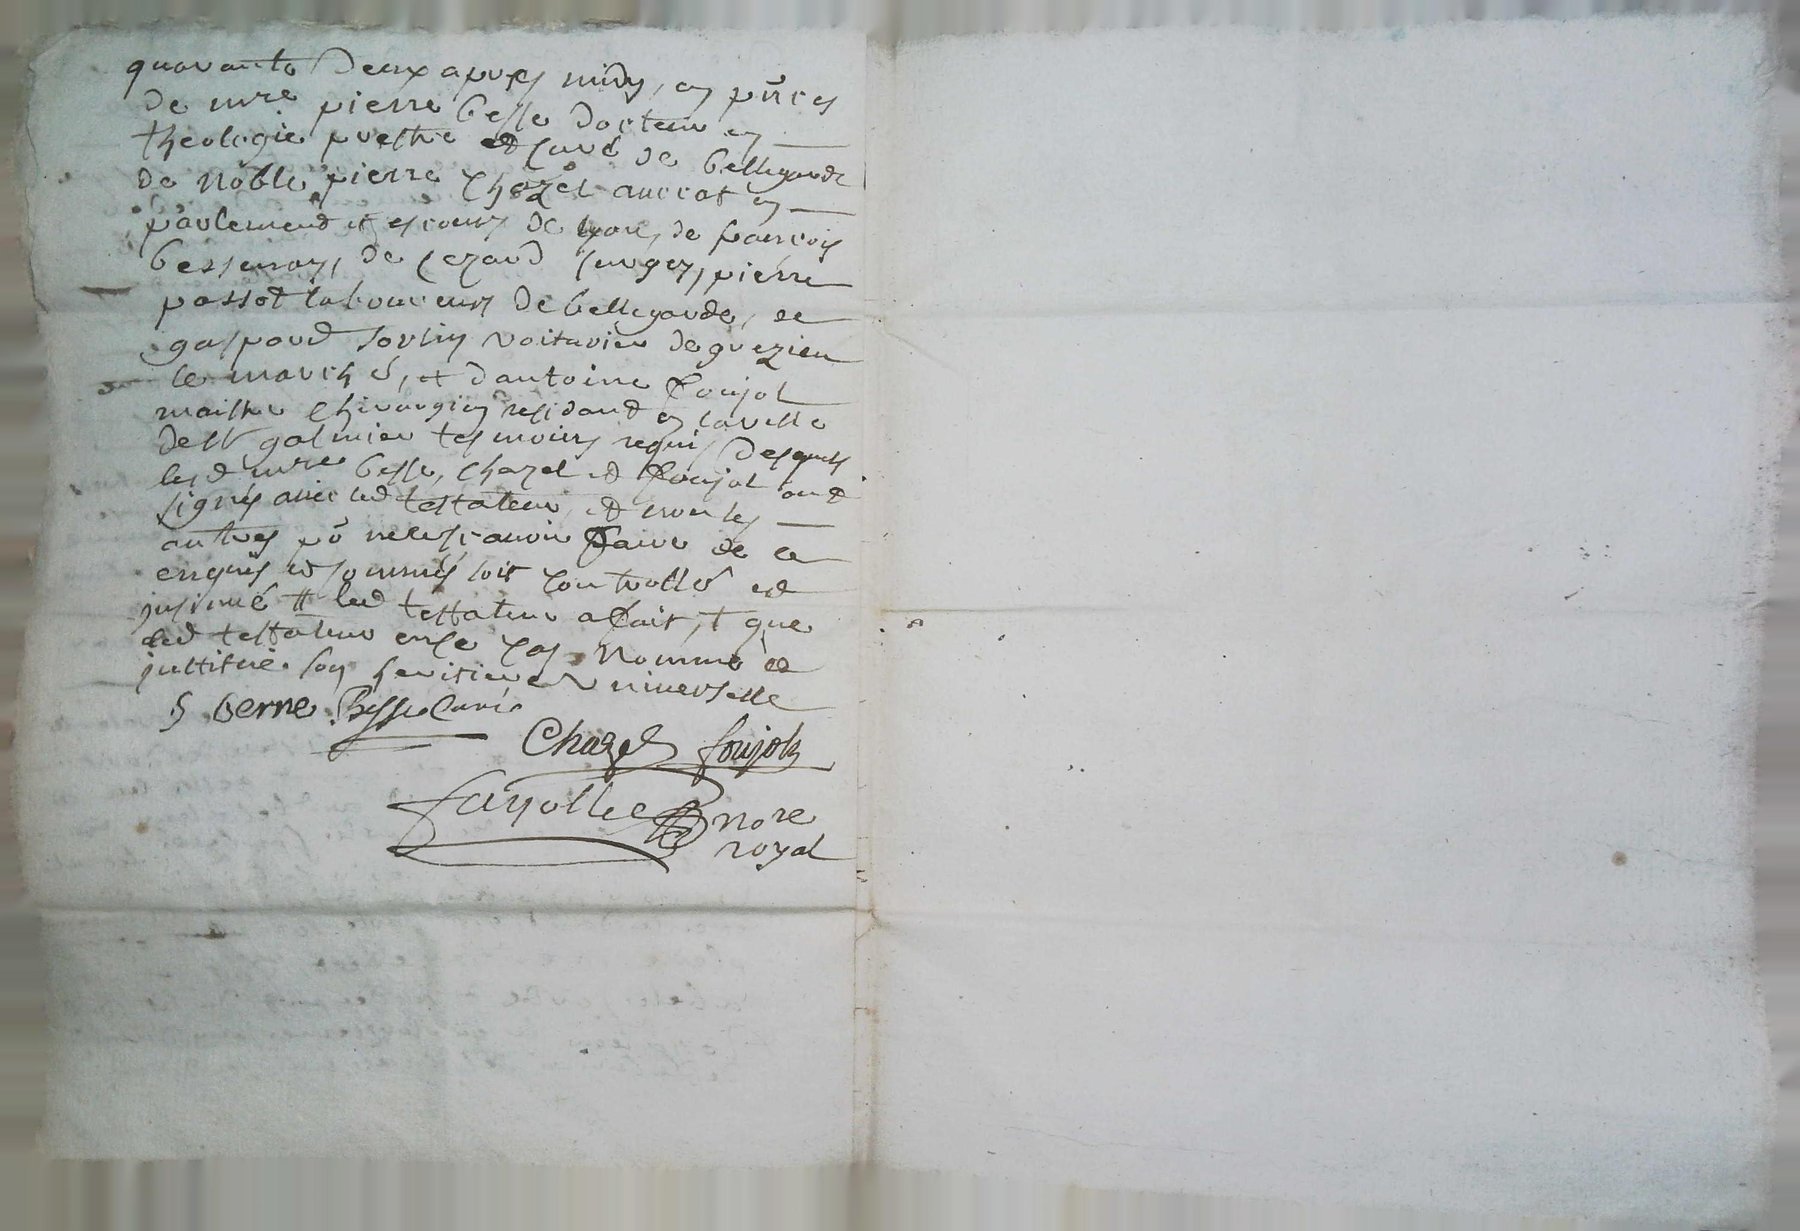 quarante deux apres midy, en pñces
de mre pierre besse docteur en
theologie prestre et curé de bellegarde
de noble pierre chazel auocat en
parlement et es cours de lyon, de francois
bessenay, de , pierre
passot laboureurs de bellegarde, de
gaspard sorlin voiturier de grezieu
le marché, et dantoine foujol
maistre chirurgien residant en la ville
de st galmier tesmoins requis desquels
lesd mre besse, chazel et foujol ont
signés auec led testateur, et non les
autres po ne le scauoir faire de ce
enquis et sommés soit controllé et
insinué # led testateur a fait, † que
led testateur en ce cas nomme et
institue son heritiere universelle
verne Besse Curé
Chazel foujols
fayolle nore
royal